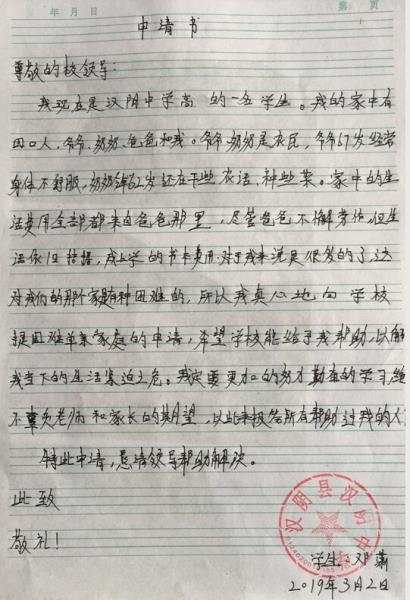 年 月 日 第 页
申请书
尊敬的校领导:
我现在是汉阴中学高 的一名学生。我的家中有
四口人,爷爷、奶奶、爸爸和我。爷爷奶奶是农民,爷爷67岁经常
身体不舒服,奶奶62岁还在干些农活,种些菜。家中的生
活费用全部都来自爸爸那里,尽管爸爸不懈劳作,但生
活依旧拮据,我上学的书本费用对于我来说是很多的了,这
对我们的那个家庭有种困难的,所以我真心地向学校
提困难单亲家庭的申请,希望学校能给予我帮助,以解
我当下的生活紧迫之危。我定要更加的努力勤奋的学习,绝
不辜负老师和家长的期望,以此来报答所有帮助过我的人
特此申请,恳请领导帮助解决。
此致
敬礼!
汉阴县汉阴中
学生:邓
2019年3月2日